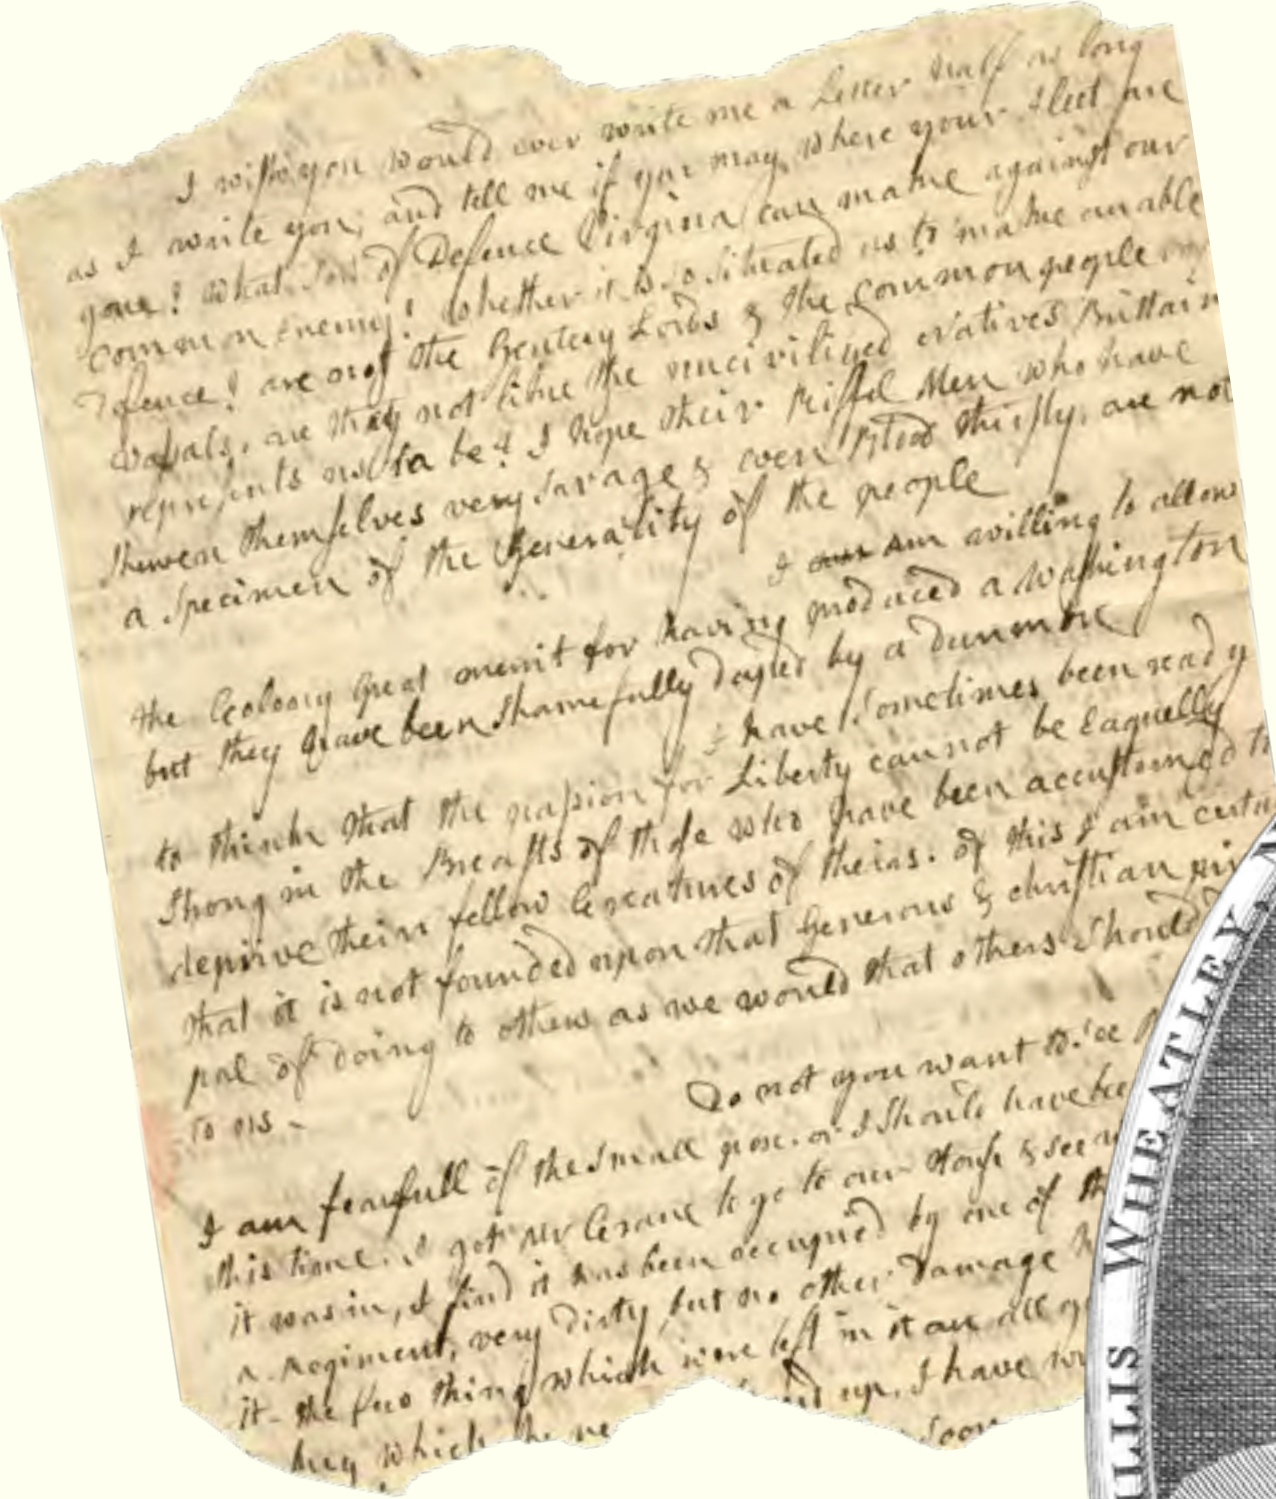 I wish you would ever write me a Letter half as long
as I write you; and tell me if you may where your Fleet are
gone? What sort of Defence Virginia can make against our
common Enemy? Whether it is so situated as to make an able
Defence? are not the Gentery Lords & the common people
vassals, are they not like the uncivilized Natives Brittain
represents us to be? I hope their Riffel Men who have
shewen themselves very savage & even Blood thirsty; are not
a specimen of the Generality of the people
I am willing to allow
the Colony great merrit for having produced a Washington
but they have been shamefully duped by a Dunmore
I have sometimes been ready
to think that the passion for Liberty cannot be Eaquelly
Strong in the Breasts of those who have been accustomed to
deprive their fellow Creatures of theirs. of this I am certa
that it is not founded upon that Generous & christian prin
pal of doing to others as we would that others should
to us -
Do not you want to see
I am fearfull of the small pox. or I should have bee
this time. I got Mr Crane to go to our House & see w
it was in, I find it has been occupied by one of th
a Regiment, very dirty, but no other Damage h
it - the few things which were left in it are all go
key which he ne up. I have wr
soon
ILLIS WHEATLEY,